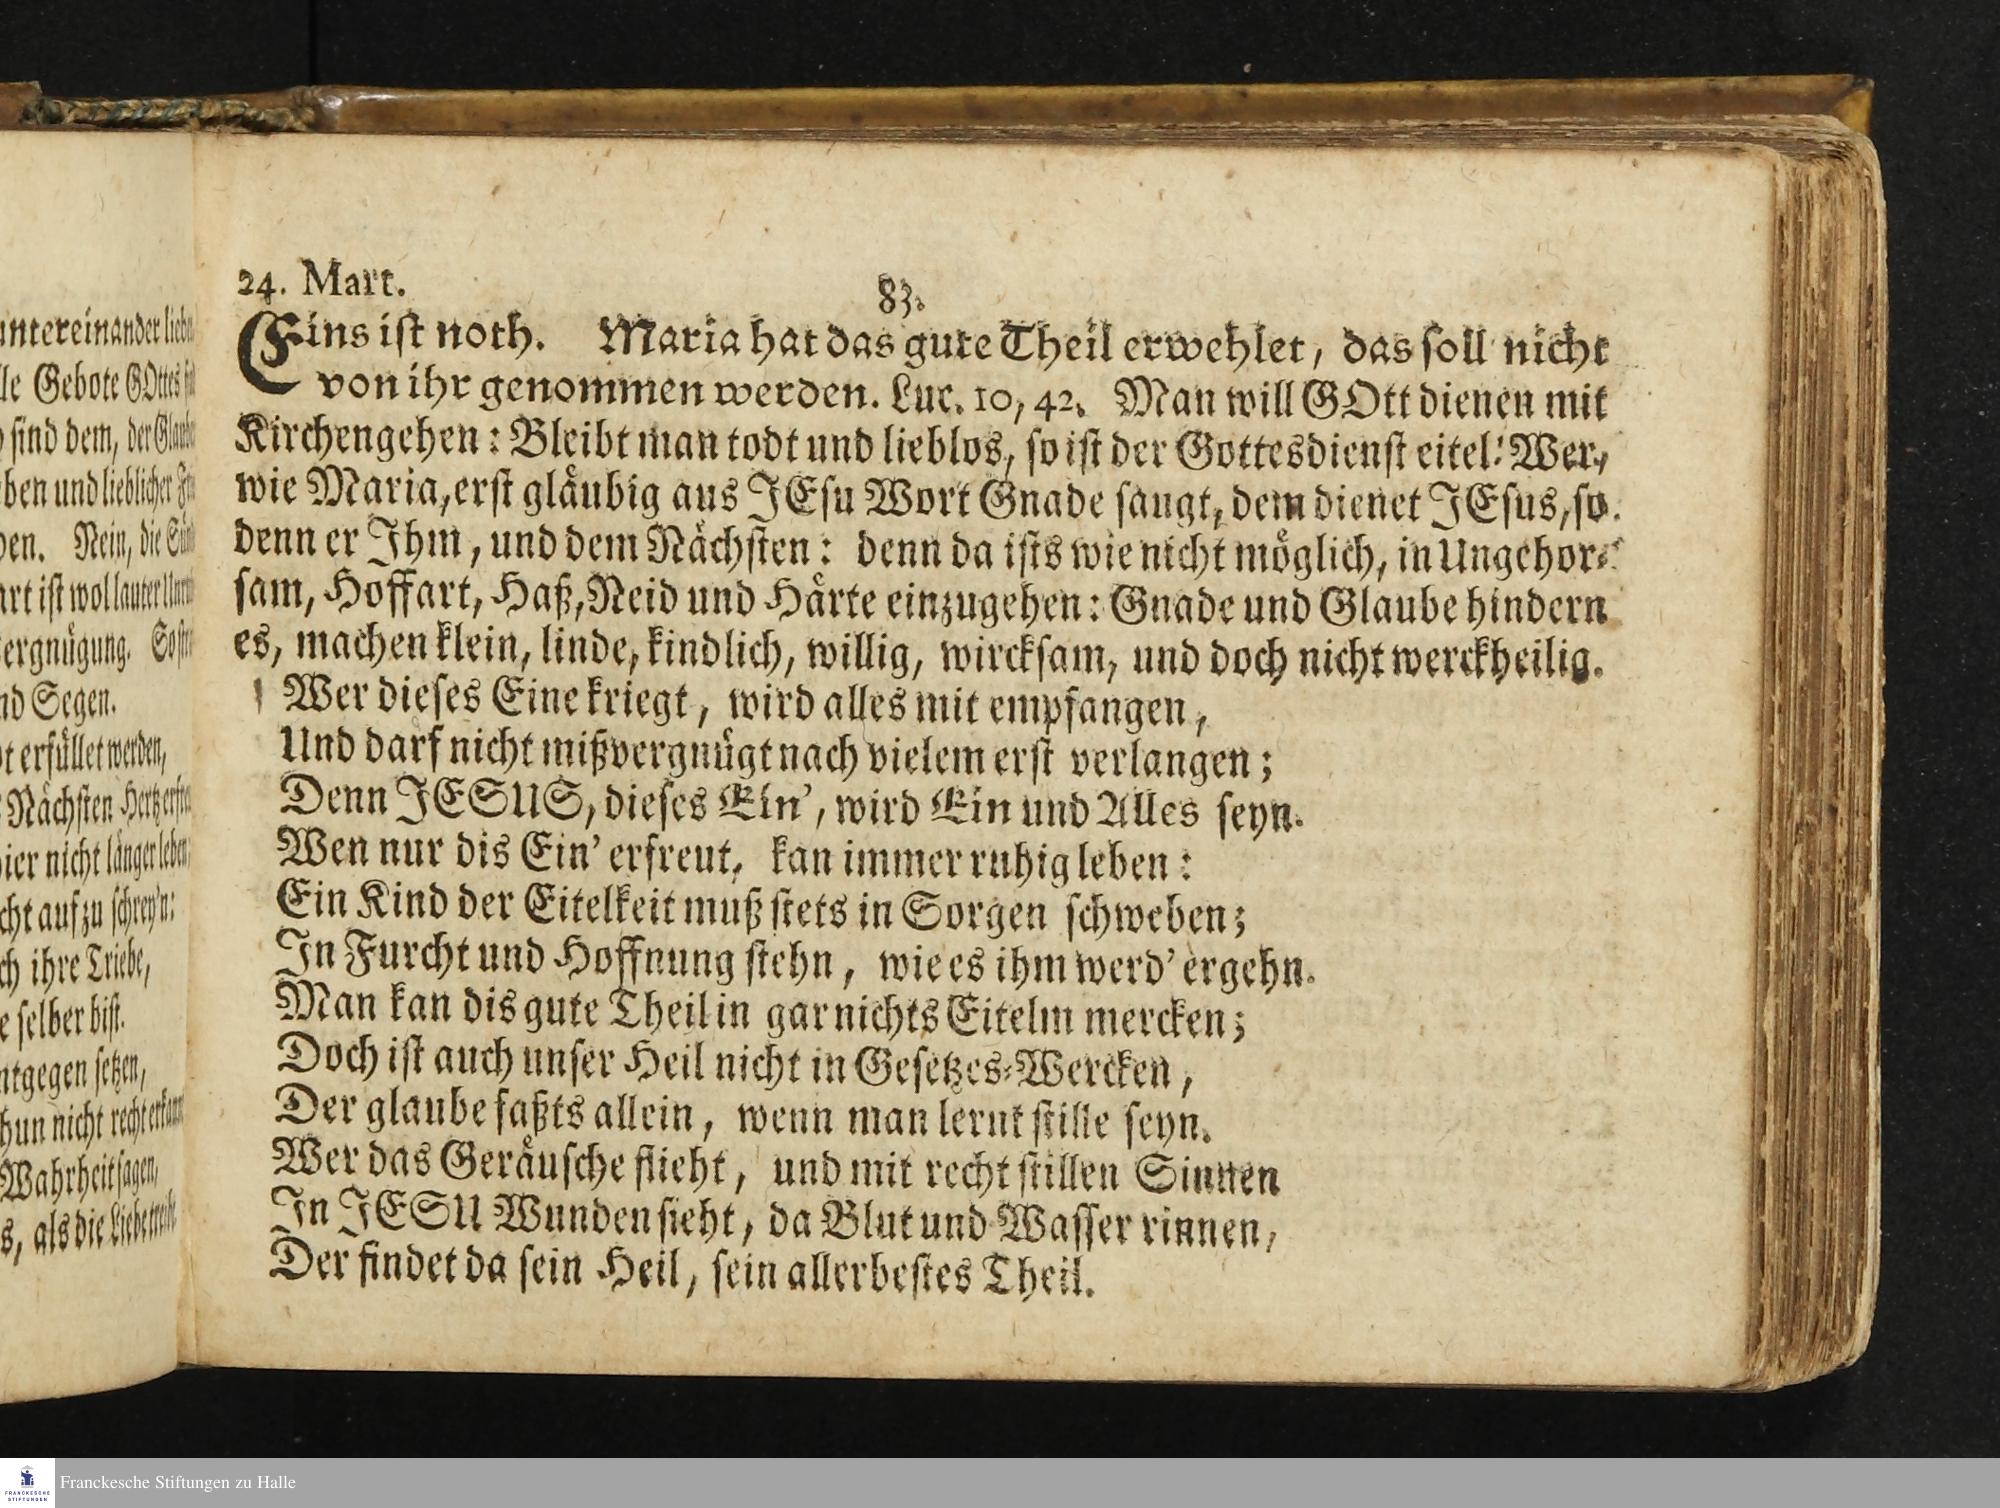 untereinander
lle Gebote GOttes
sind dem, der
ben und lieblicher
pen. Nein, die
art ist wol lauter
ergnügung.
nd Segen.
t erfüllet werden,
Nächsten Hertz
ier nicht länger leben
cht auf zu schrey'n:
ch ihre Triebe,
e selber bist.
ntgegen setzen,
hun nicht recht erkannt
Wahrheit sagen,
s, als die Liebe treibt
24. Mart.
83.
Eins ist noth. Maria hat das gute Theil erwehlet, das soll nicht
von ihr genommen werden. Luc. 10, 42. Man will GOtt dienen mit
Kirchengehen: Bleibt man todt und lieblos, so ist der Gottesdienst eitel! Wer,
wie Maria, erst gläubig aus JEsu Wort Gnade saugt, dem dienet JEsus, so
denn er Ihm, und dem Nächsten: denn da ists wie nicht möglich, in Ungehor-
sam, Hoffart, Haß, Neid und Härte einzugehen: Gnade und Glaube hindern
es, machen klein, linde, kindlich, willig, wircksam, und doch nicht werckheilig.
Wer dieses Eine kriegt, wird alles mit empfangen,
Und darf nicht mißvergnügt nach vielem erst verlangen;
Denn JESUS, dieses Ein', wird Ein und Alles seyn.
Wen nur dis Ein' erfreut, kan immer ruhig leben:
Ein Kind der Eitelkeit muß stets in Sorgen schweben;
In Furcht und Hoffnung stehn, wie es ihm werd' ergehn.
Man kan dis gute Theil in gar nichts Eitelm mercken;
Doch ist auch unser Heil nicht in Gesetzes-Wercken,
Der glaube faßts allein, wenn man lernt stille seyn.
Wer das Geräusche flieht, und mit recht stillen Sinnen
In JESU Wunden sieht, da Blut und Wasser rinnen,
Der findet da sein Heil, sein allerbestes Theil.
FRANCKESCHE
STIFTUNGEN
Franckesche Stiftungen zu Halle